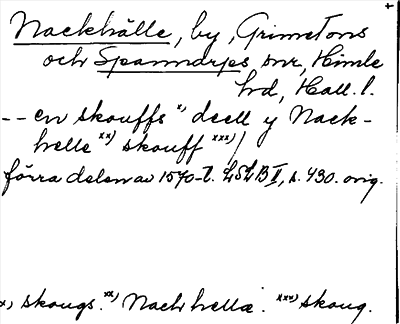 Nackhälle, by, Grimetons
och Spannarps snr, Himle
hd, Hall. l.
-- en skouffs x) deell y Nack-
helle xx) skouff xxx)/
förra delen av 1570-t. LSLB II, s. 430. orig.
x) skougs. xx) Nackhella. xxx) skoug.